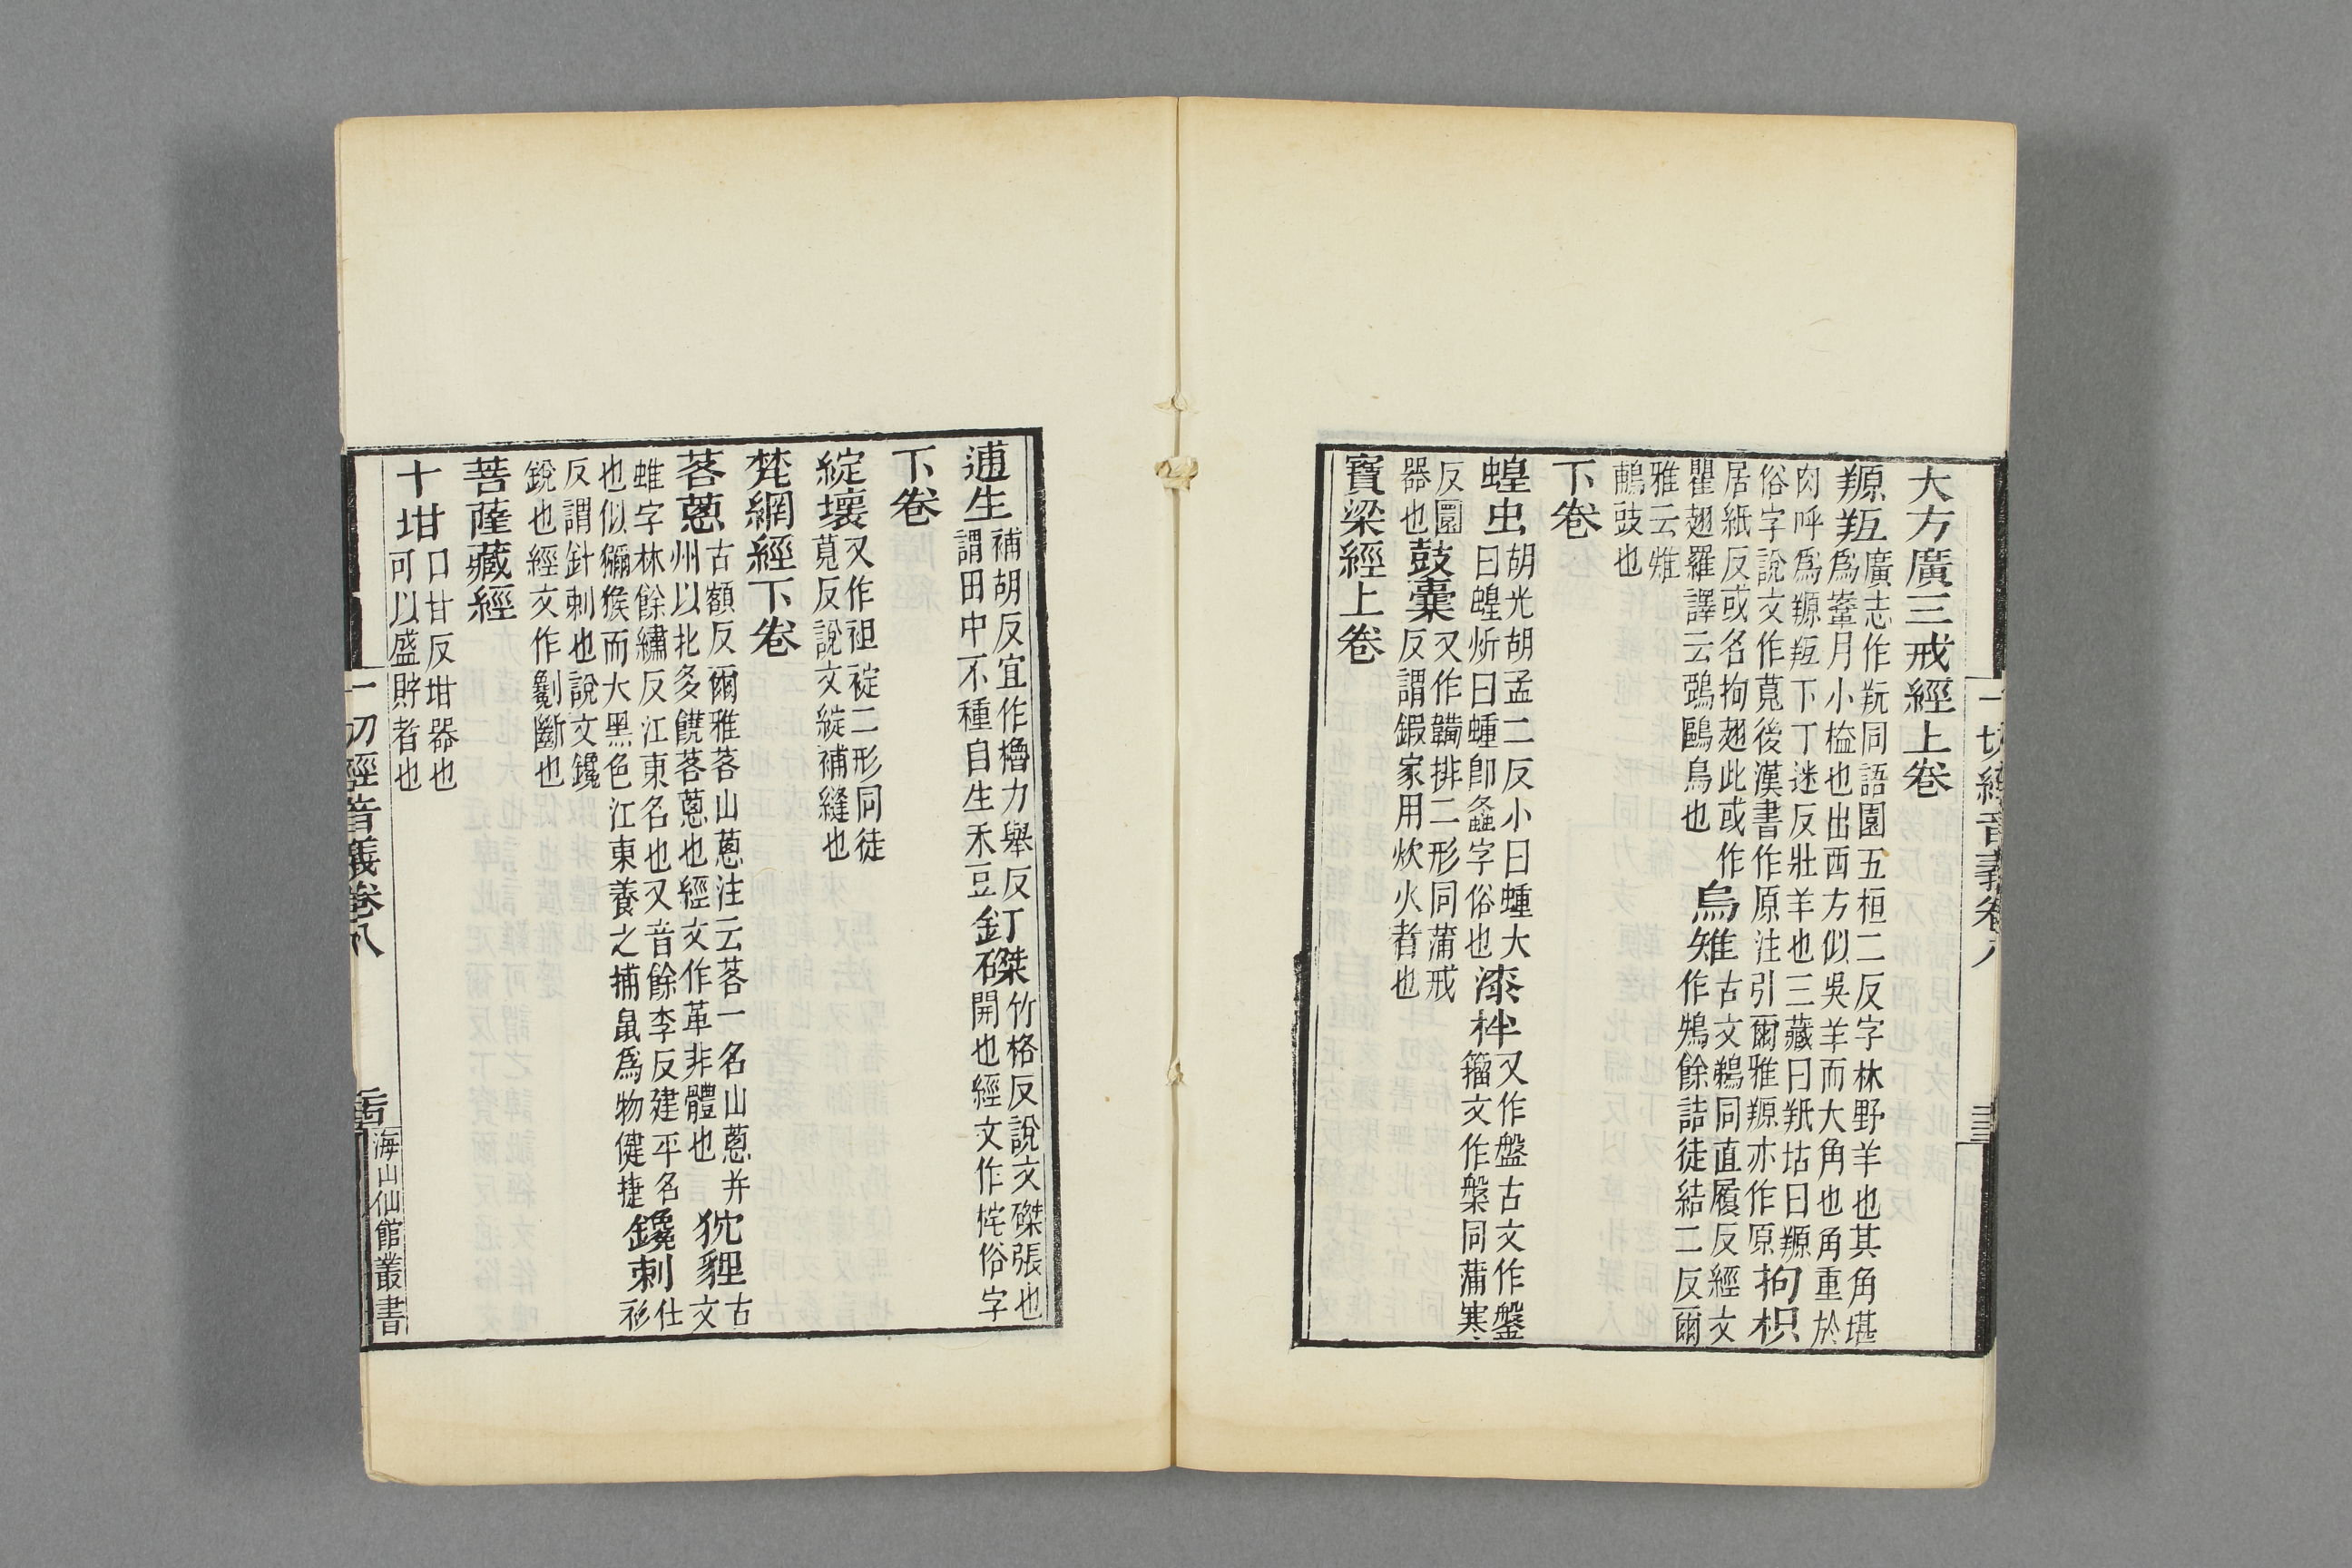 大方廣三戒經上卷
羱羝
廣志作羱同語園五桓二反字林野羊也其角堪
爲鞌月小榼也出西方似吳羊而大角也角重於
肉呼爲羱羝下丁迷反牡羊也三藏曰羝𦍩曰羱
俗字說文作莧後漢書作原注引爾雅羱亦作原
拘枳
居紙反或名拘翅此或作
瞿翅羅譯云鵄鷗鳥也
烏雉
古文䳄同直履反經文
作鴩餘詰徒結二反爾
雅云雉
鵏䜴也
下卷
蝗虫
胡光胡孟二反小曰蝩大
曰蝗炘曰蝩卽螽字俗也
漆柈
又作盤古文作鎜
籀文作槃同蒲寒
反圜
器也
鼓橐
又作韛排二形同蒲戒
反謂鍜家用炊火者也
寶梁經上卷
一切經音義卷八
逋生
補胡反宜作穭力舉反
謂田中不種自生禾豆
釘磔
竹格反說文磔張也
開也經文作㡯俗字
下卷
綻壞
又作袒䘺二形同徒
莧反說文綻補縫也
梵網經下卷
茖蔥
古額反爾雅茖山蔥注云茖一名山蔥幷
州以北多饒茖蔥也經文作革非體也
狖貍
古
文
蜼字林餘繡反江東名也又音餘季反建平名
也似獼猴而大黑色江東養之捕鼠爲物健捷
鑱刺
仕
衫
反謂針刺也說文鑱
銳也經文作劖斷也
菩薩藏經
十坩
口甘反坩器也
可以盛貯者也
一切經音義卷八
海山仙館叢書